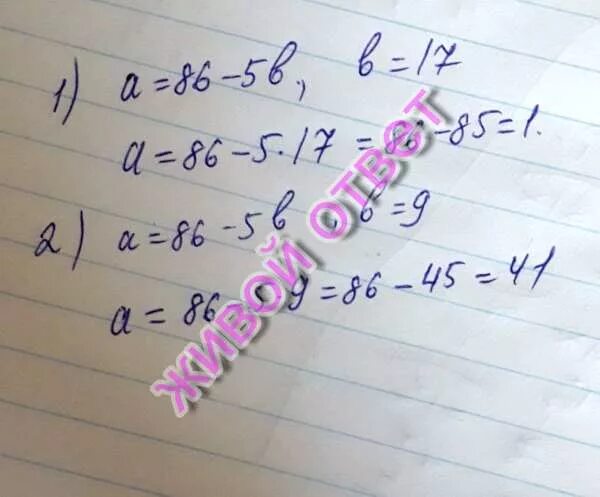 1) a = 86 - 5b, b = 17
a = 86 - 5 · 17 = 86 - 85 = 1.
2) a = 86 - 5b, b = 9
a = 86 - 5 · 9 = 86 - 45 = 41
ЖИВОЙ ОТВЕТ